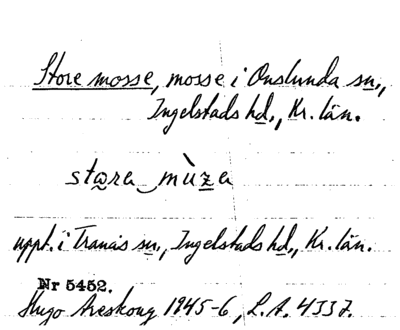 Store mosse, mosse i Onslunda sn.,
Ingelstads hd., Kr. län.
uppt. i Tranås sn., Ingelstads hd., Kr. län.
Nr 5452.
Hugo Areskoug 1945-6, L.A.